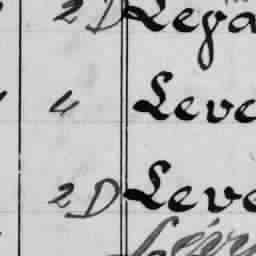 2 D Lega
4 Leve
2 D Leve